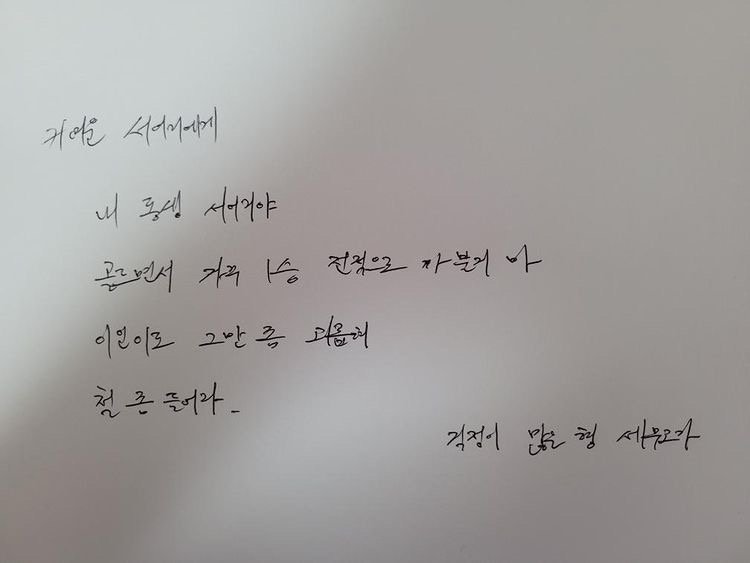 귀여운 서어리에게
내 동생 서어리야
골드면서 자꾸 1승 전적으로 까불지 마
이인이도 그만 좀 괴롭혀
철 좀 들어라
걱정이 많은 형 세무로가